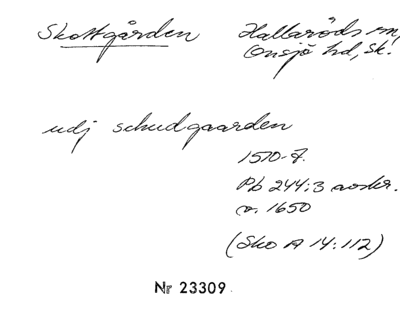 Skottgården Hallaröds sn,
Onsjö hd, Sk.
udj schudgaarden
1570-t.
Pb 244:3 avskr.
v. 1650
(Sko A 14:112)
Nr 23309